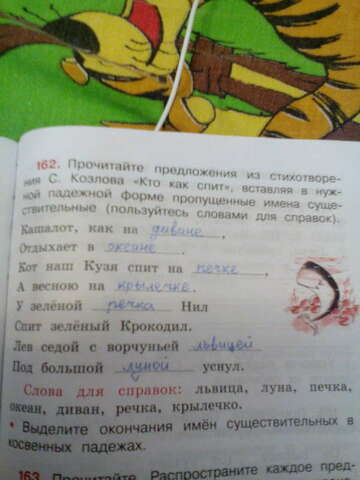 162. Прочитайте предложения из стихотворе-
ния С. Козлова «Кто как спит», вставляя в нуж-
ной падежной форме пропущенные имена суще-
ствительные (пользуйтесь словами для справок).
Кашалот, как на диване,
Отдыхает в океане.
Кот наш Кузя спит на печке,
А весною на крылечке.
У зелёной речка Нил
Спит зелёный Крокодил.
Лев седой с ворчуньей львицей
Под большой луной уснул.
Слова для справок: львица, луна, печка,
океан, диван, речка, крылечко.
• Выделите окончания имён существительных в
косвенных падежах.
163. Прочитайте. Распространите каждое пред-